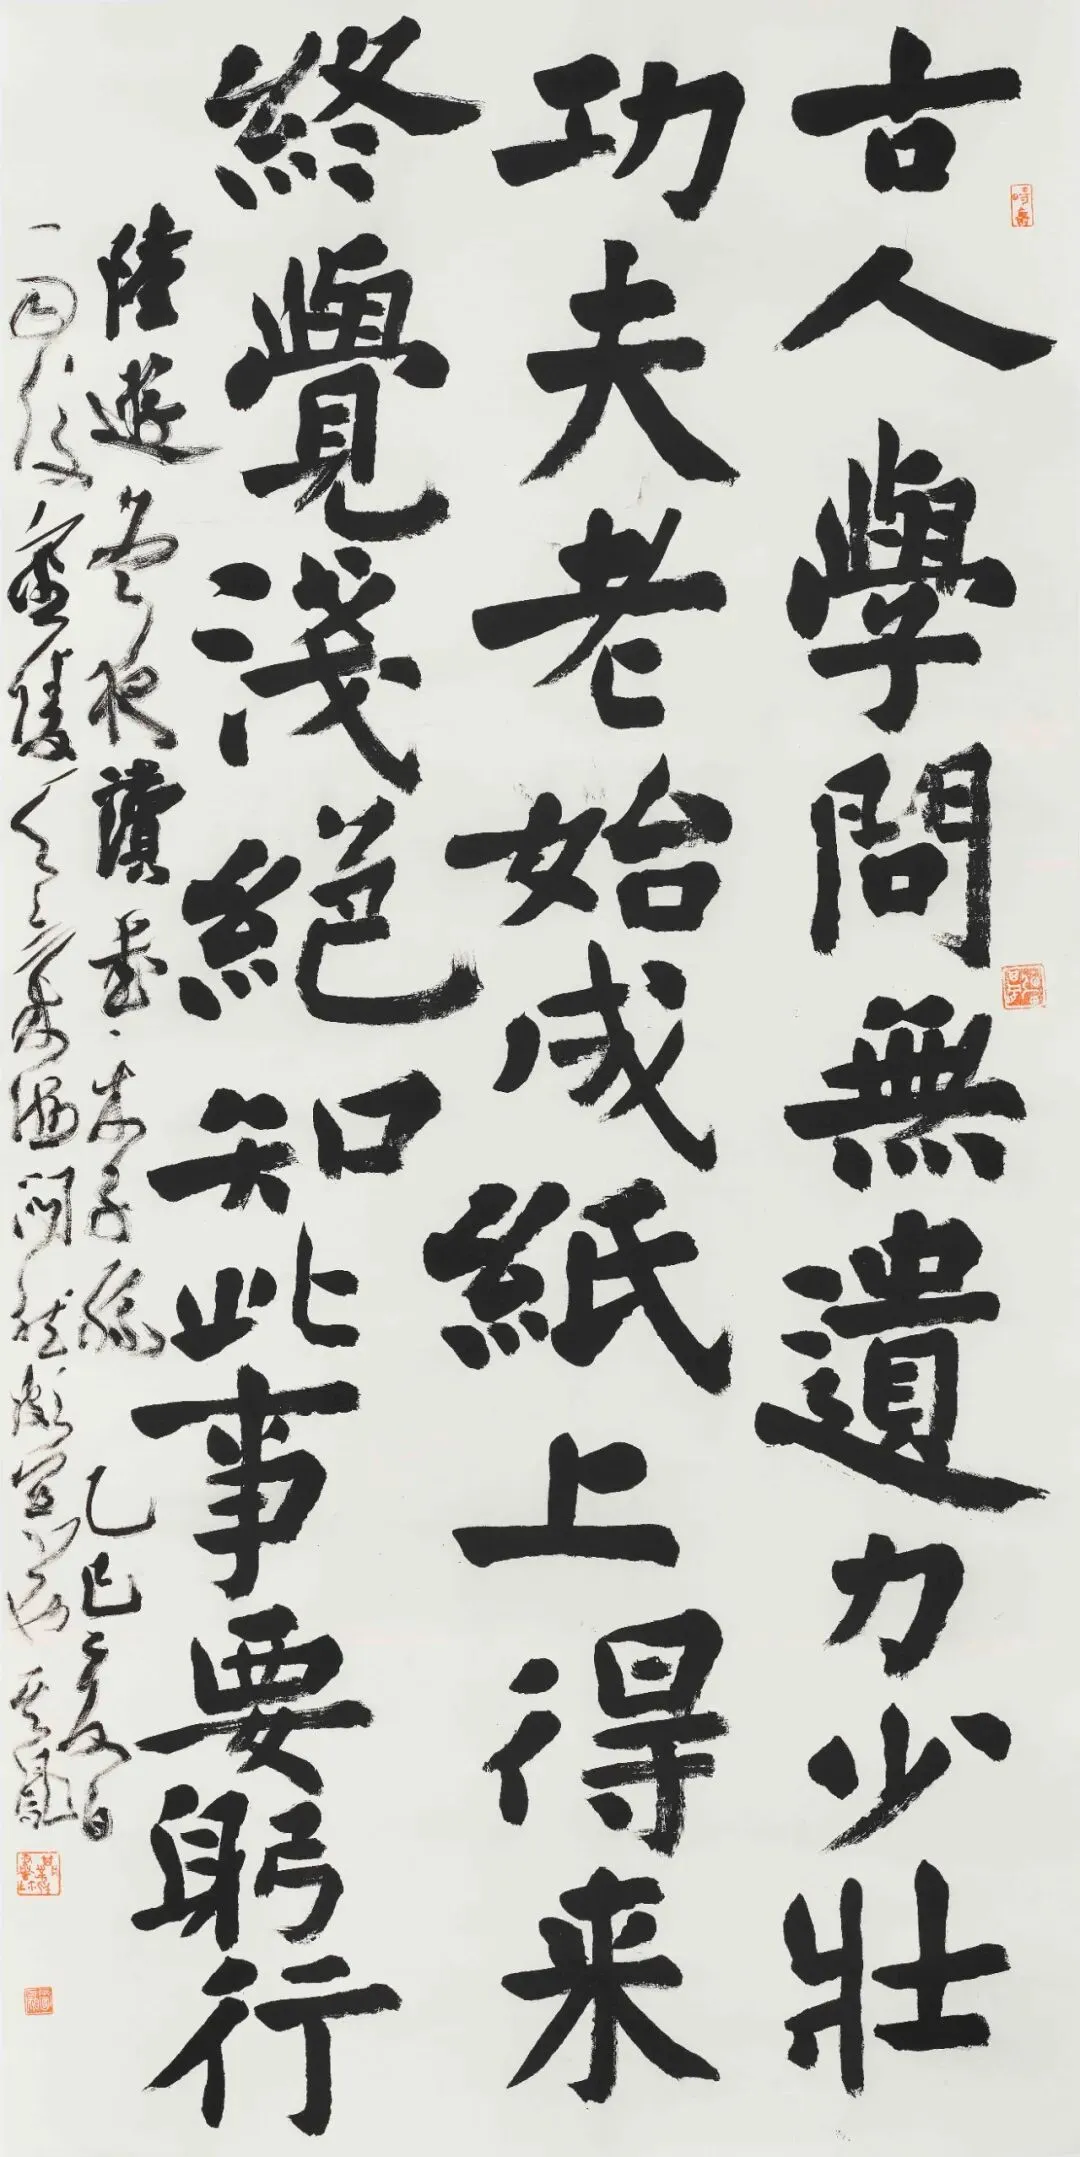 古人學問無遺力少壯
功夫老始成紙上得来
終覺淺絕知此事要躬行
陸遊冬夜讀書示子聿乙巳之夏
雨後金陵